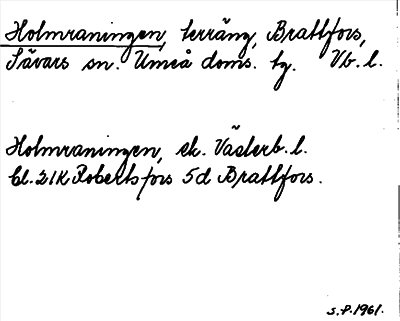 Holmraningen, terräng, Brattfors,
Sävars sn. Umeå doms. tg. Vb. l.
Holmraningen, ek. Västerb. l.
bl. 21K Robertsfors 5d Brattfors.
S.P. 1961.